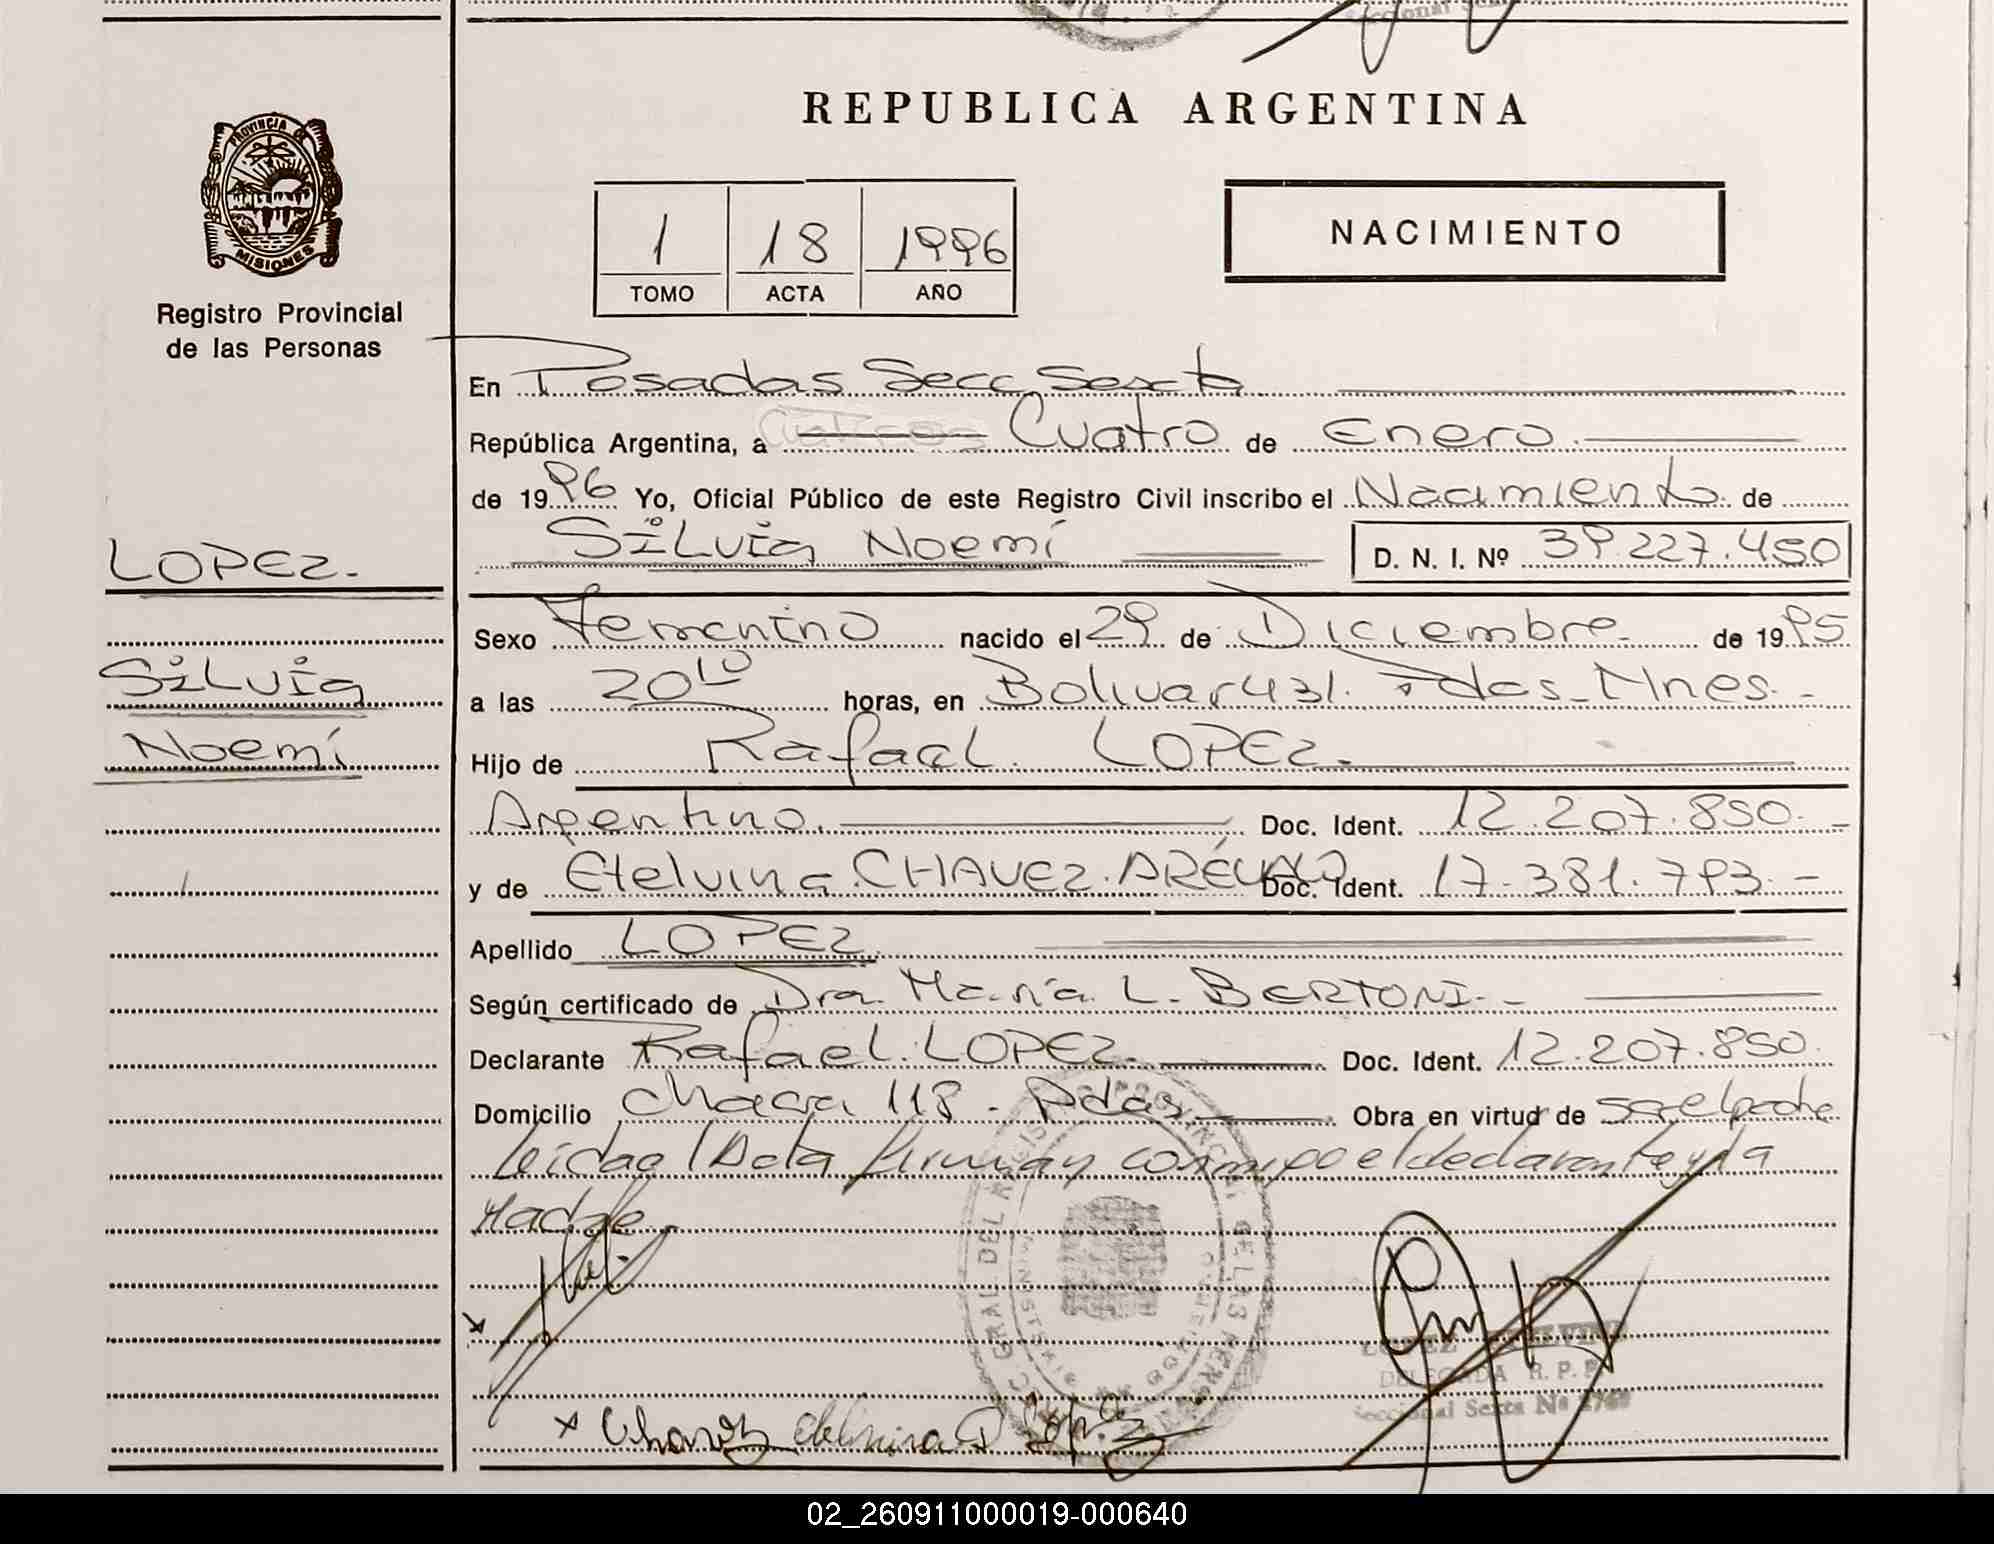 REPUBLICA ARGENTINA
PROVINCIA DE
MISIONES
Registro Provincial
de las Personas
1 18 1996
TOMO ACTA AÑO
NACIMIENTO
En Posadas Secc Sexta
República Argentina, a Cuatro de Enero.
de 1996 Yo, Oficial Público de este Registro Civil inscribo el Nacimiento de
Silvia Noemí D. N. I. Nº 39.227.450
LOPEZ.
Silvia
Noemí
Sexo Femenino nacido el 29 de Diciembre de 1995
a las 20 10 horas, en Bolivar 431. Pdas-Mnes.-
Hijo de Rafael LOPEZ.
Argentino. Doc. Ident. 12.207.850.-
y de Etelvina CHAVEZ. ARÉVALO Doc. Ident. 17.381.793.-
Apellido LOPEZ.
Según certificado de Dra. María L. BERTONI.-
Declarante Rafael LOPEZ. Doc. Ident. 12.207.850.
Domicilio Chacra 118 - Pdas. Obra en virtud de ser el padre
leída el Acta firman conmigo el declarante y la
Madre.
GRAL DEL REGISTRO PROVINCIAL DE LAS PERS
MINISTERIO DE GOBIERNO
LOPEZ
DELEGADA R. P. P.
Seccional Sexta Nº
x
x Chavez Etelvina D Lopez
02_260911000019-000640